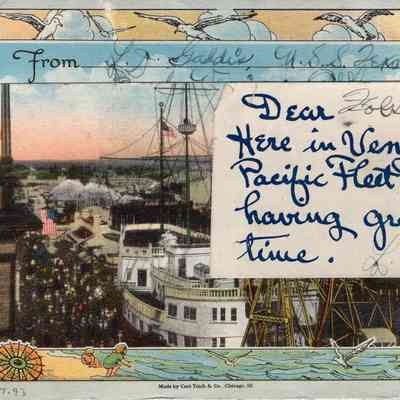 From L. J. Gaddis U.S.S. Texas
Dear Folks
Here in Ven
Pacific Fleet
having gre
time.
Made by Curt Teich & Co., Chicago, Ill.
7-93